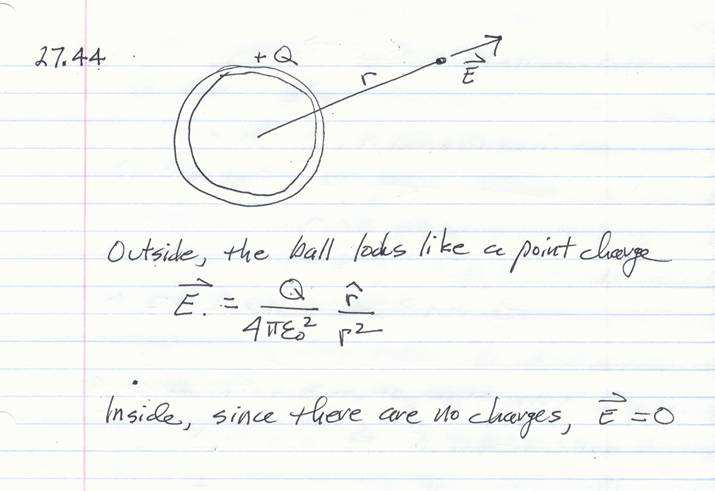 27.44
+Q
r
E⃗
Outside, the ball looks like a point charge
E⃗. = Q/(4πε₀²) r̂/r²
Inside, since there are no charges, E⃗ = 0